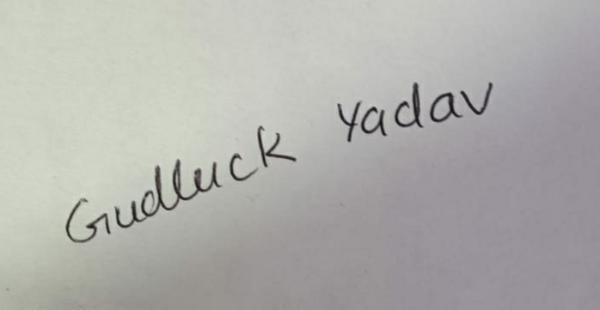 Gudluck Yadav